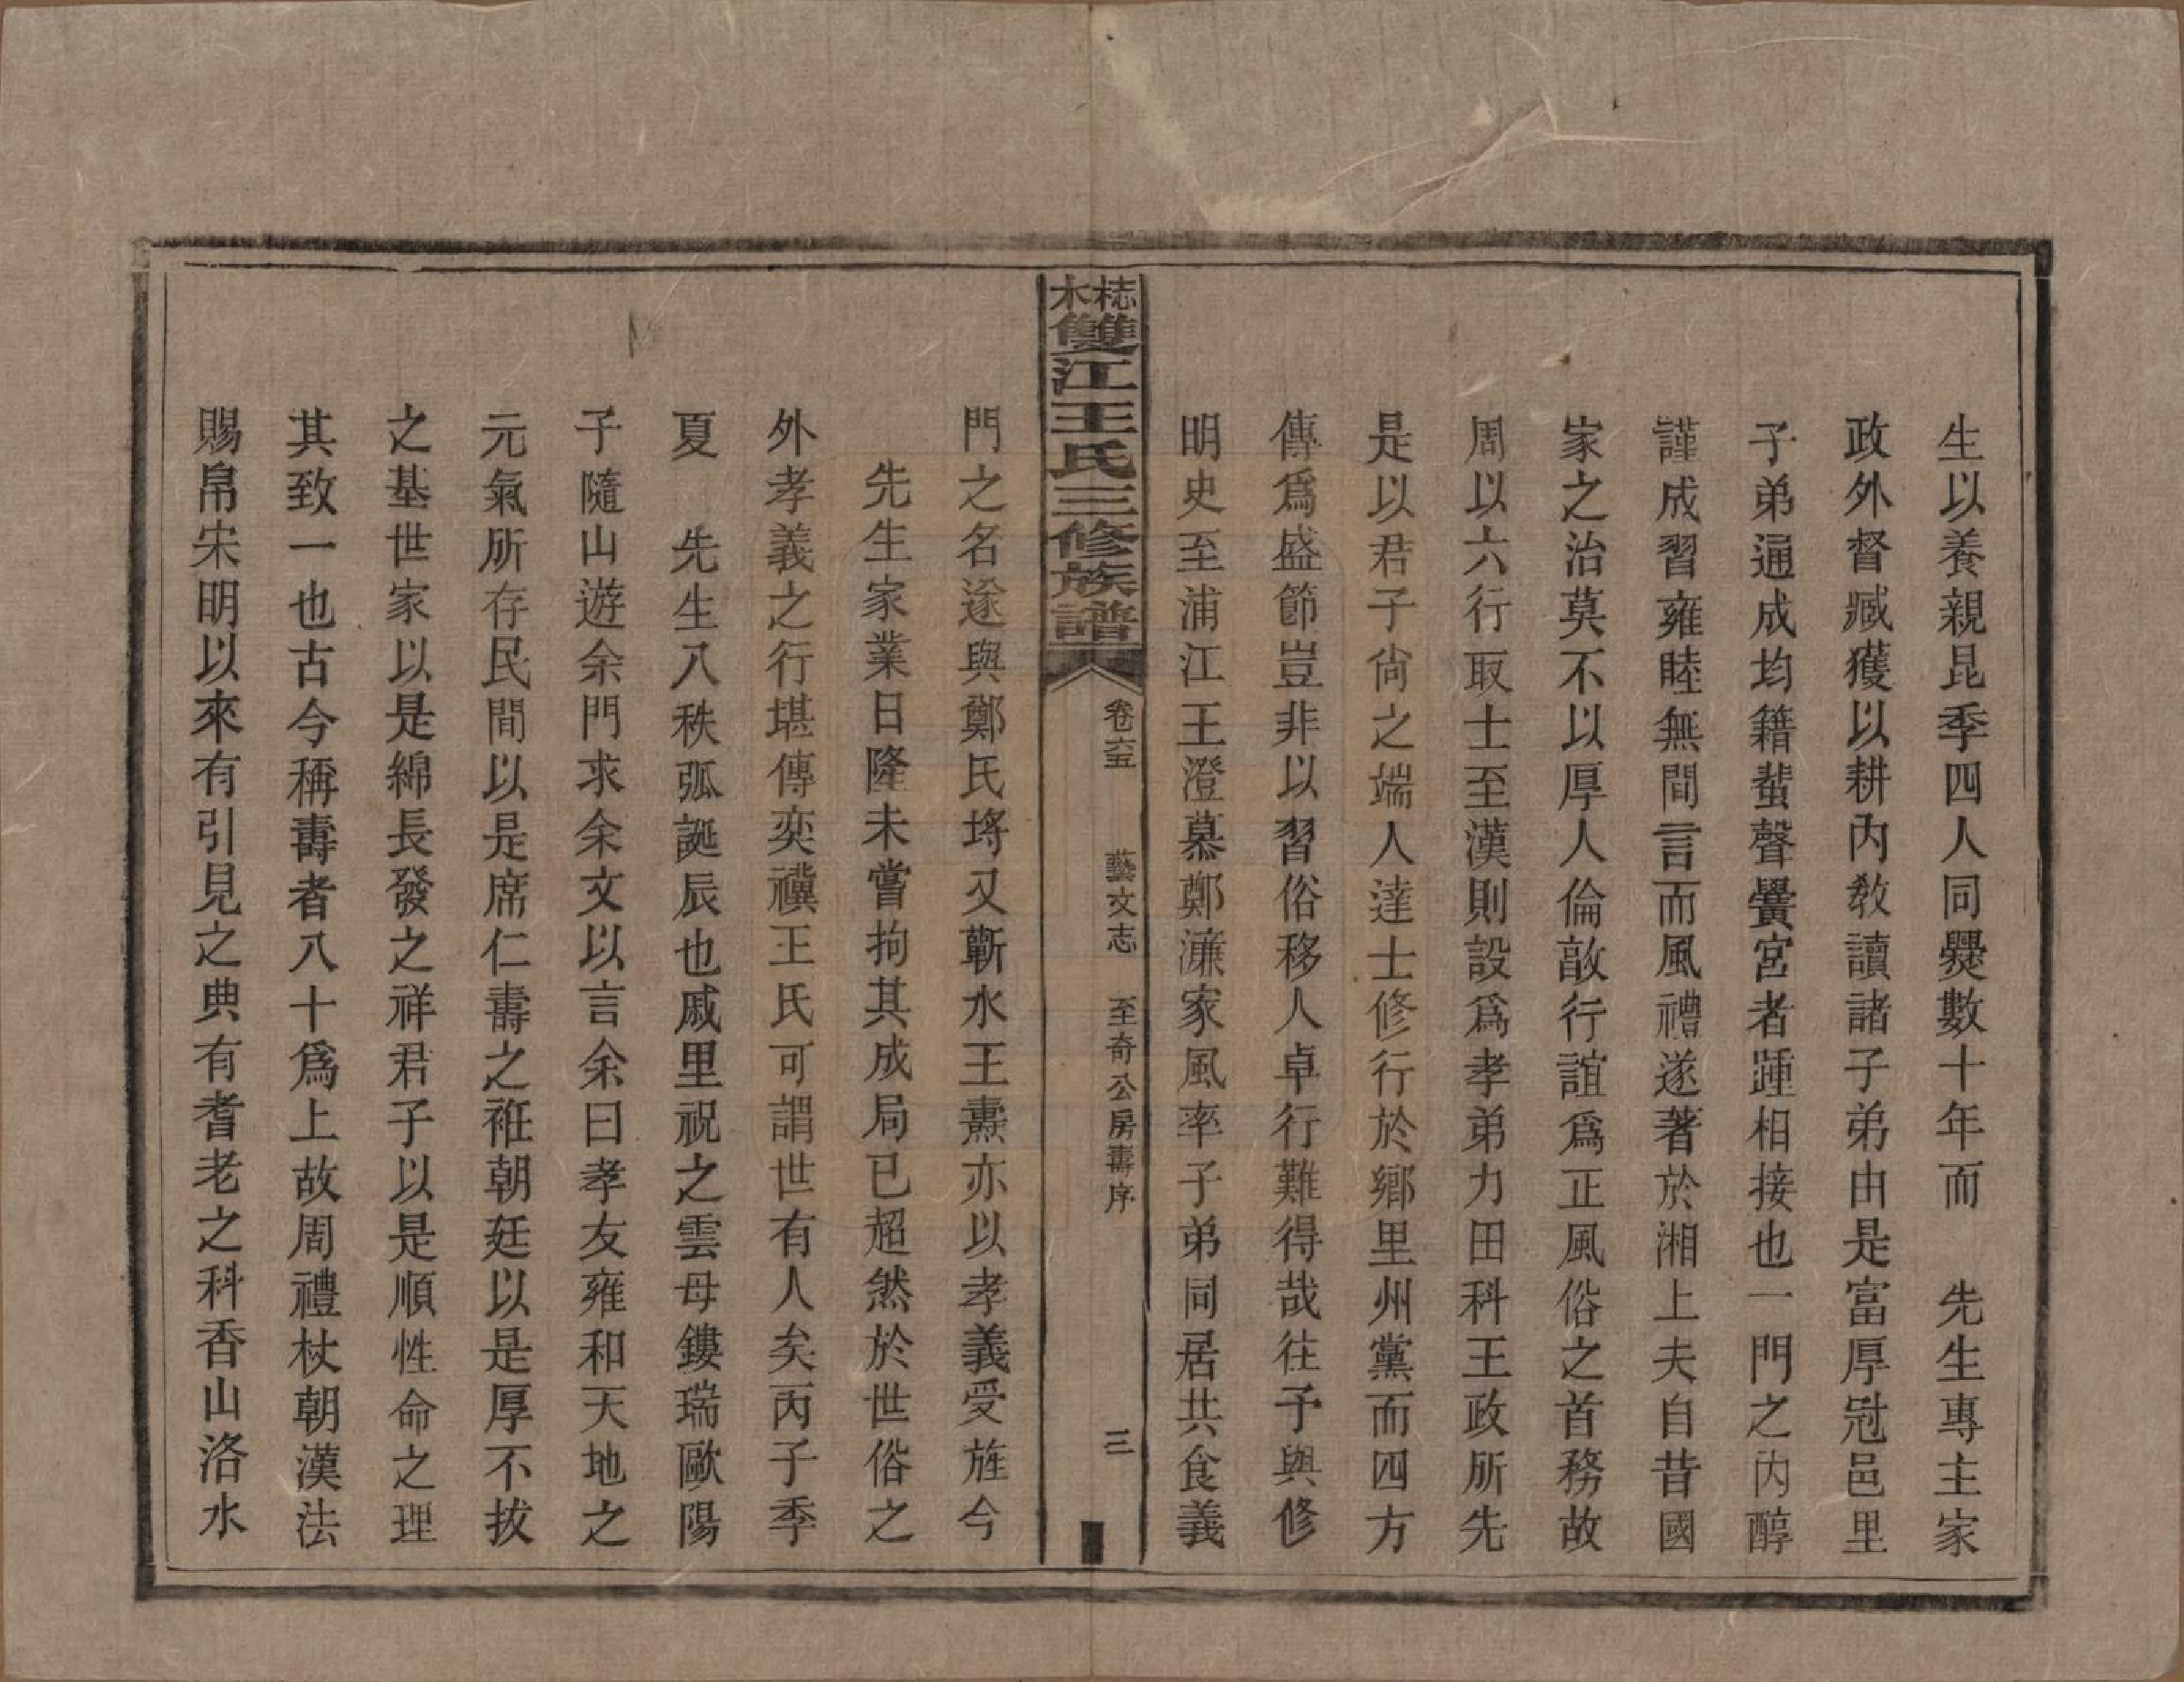 生以養親昆季四人同爨數十年而　先生專主家
政外督臧獲以耕內敎讀諸子弟由是富厚冠邑里
子弟通成均籍蜚聲黌宮者踵相接也一門之內醇
謹成習雍睦無間言而風禮遂著於湘上夫自昔國
家之治莫不以厚人倫敦行誼爲正風俗之首務故
周以六行取士至漢則設爲孝弟力田科王政所先
是以君子尙之端人達士修行於鄉里州黨而四方
傳爲盛節豈非以習俗移人卓行難得哉往予與修
明史至浦江王澄慕鄭濂家風率子弟同居共食義
栨木雙江王氏三修族譜
卷六五
藝文志
至奇公房壽序
三
門之名遂與鄭氏埒又蘄水王燾亦以孝義受旌今
先生家業日隆未嘗拘其成局已超然於世俗之
外孝義之行堪傳奕禩王氏可謂世有人矣丙子季
夏　先生八秩弧誕辰也戚里祝之雲母鏤瑞歐陽
子隨山遊余門求余文以言余曰孝友雍和天地之
元氣所存民間以是席仁壽之祉朝廷以是厚不拔
之基世家以是綿長發之祥君子以是順性命之理
其致一也古今稱壽者八十爲上故周禮杖朝漢法
賜帛宋明以來有引見之典有耆老之科香山洛水